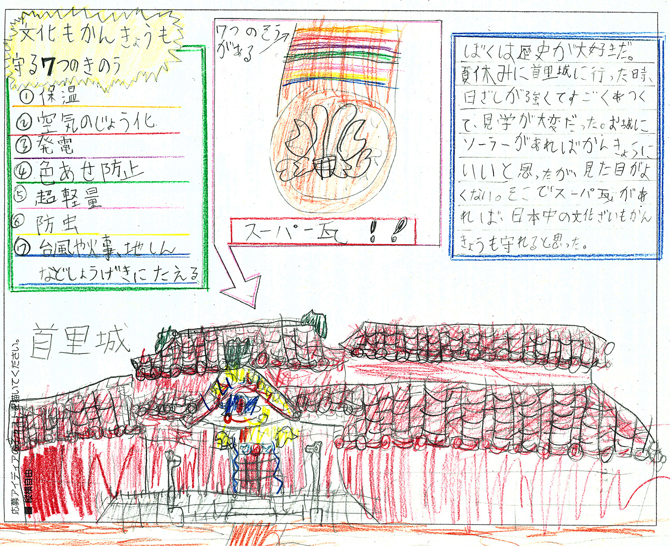 文化もかんきょうも
守る7つのきのう
①保温
②空気のじょう化
③発電
④色あせ防止
⑤超軽量
⑥防虫
⑦台風や火事、地しん
などしょうげきにたえる
7つのそう
がある
スーパー瓦!!
ぼくは歴史が大好きだ。
夏休みに首里城に行った時、
日ざしが強くてすごくあつく
て、見学が大変だった。お城に
ソーラーがあればかんきょうに
いいと思ったが、見た目がよ
くない。そこでスーパー瓦があ
れば、日本中の文化ざいもかん
きょうも守れると思った。
首里城
応募アイディア
いてください。